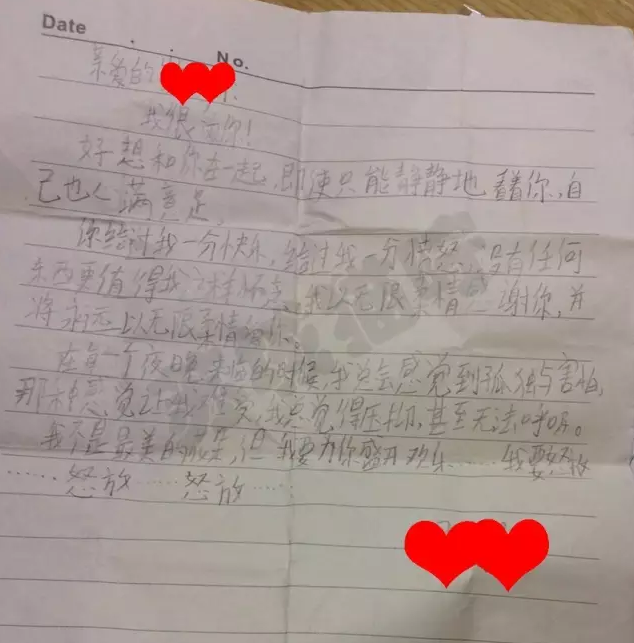 Date . . No.
亲爱的
我很你!
好想和你在一起,即使只能静静地看着你,自
己也心满意足。
你给过我一分快乐,给过我一分愤怒,没有任何
东西更值得我这样怀念,我以无限柔情感谢你,并
将永远以无限柔情你。
在每一个夜晚来临的时候,我总会感觉到孤独与害怕,
那种感觉让我难受,我总觉得压抑,甚至无法呼吸。
我不是最美的花朵,但我要为你盛开欢乐……我要怒放
……怒放……怒放……